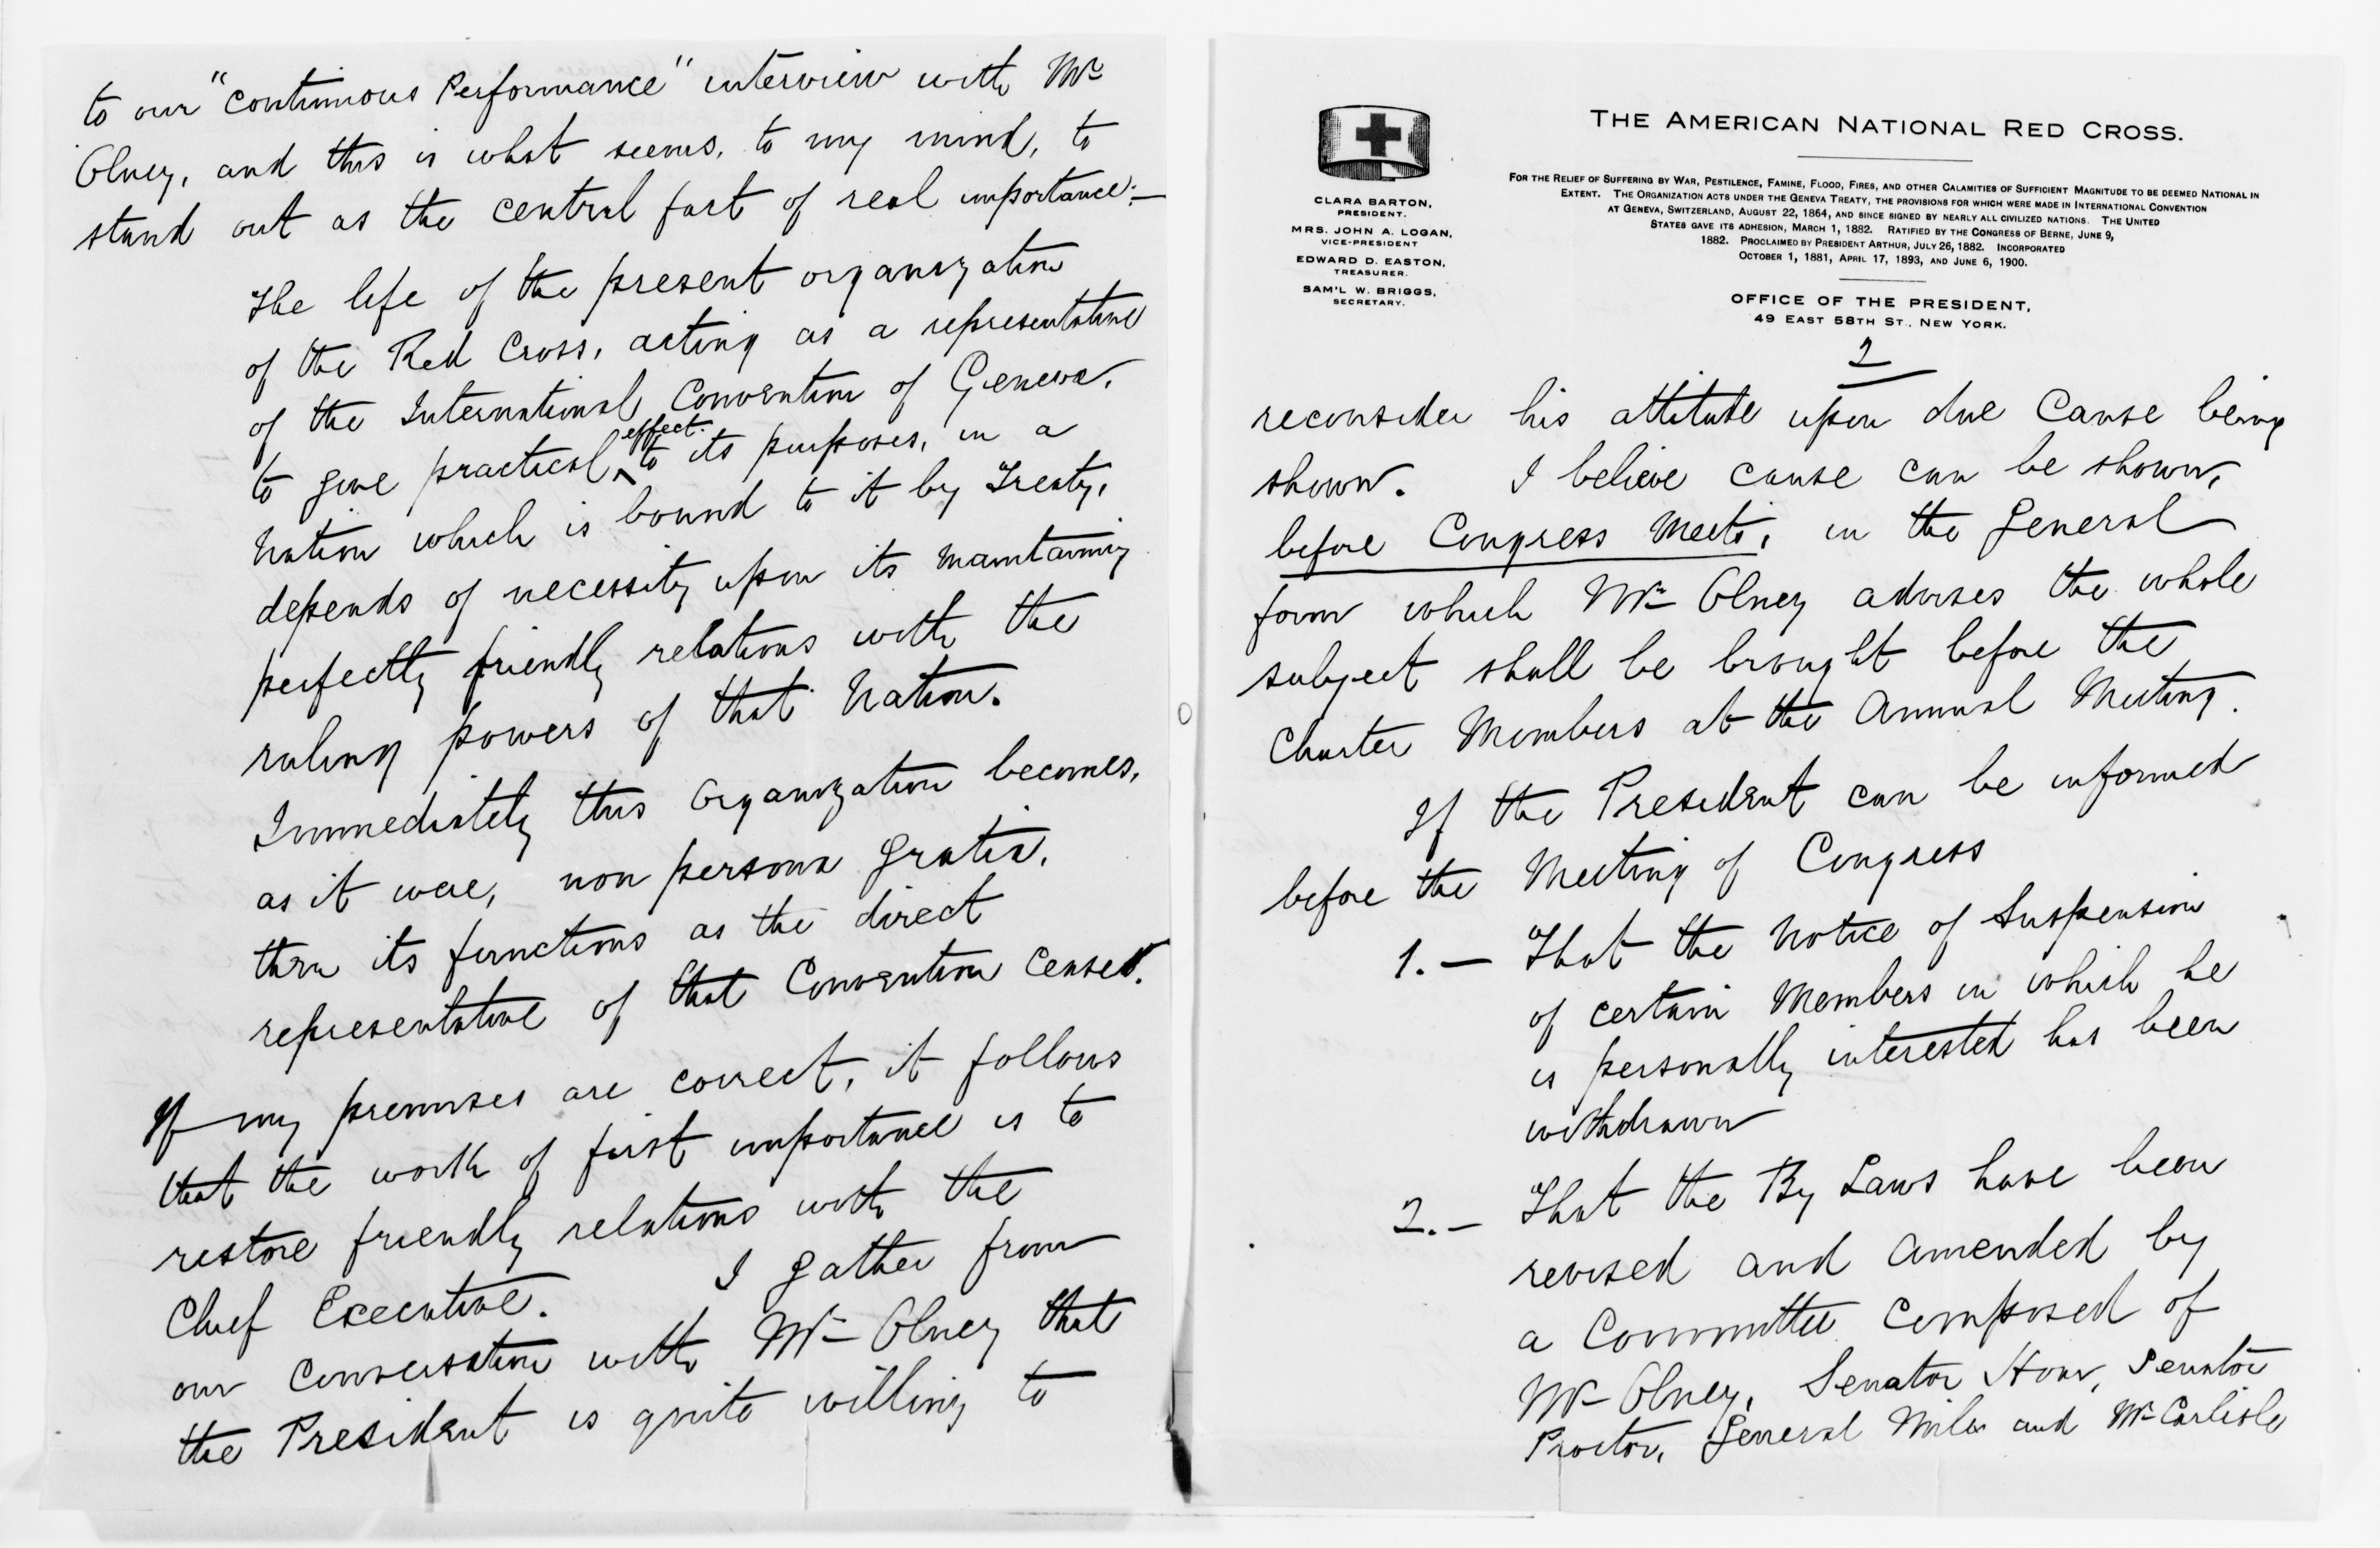 to our "Continuous Performance" interview with Mr
Olney, and this is what seems, to my mind, to
stand out as the central fact of real importance:—
The life of the present organization
of the Red Cross, acting as a representative
of the International Convention of Geneva,
effect
to give practical ^ to its purposes, in a
Nation which is bound to it by Treaty,
depends of necessity upon its maintaining
perfectly friendly relations with the
ruling powers of that Nation.
Immediately this Organization becomes,
as it were, non persona gratia,
then its functions as the direct
representative of that Convention ceases.
If my premises are correct, it follows
that the work of first importance is to
restore friendly relations with the
Chief Executive. I gather from
our Conversation with Mr Olney that
the President is quite willing to
THE AMERICAN NATIONAL RED CROSS.
FOR THE RELIEF OF SUFFERING BY WAR, PESTILENCE, FAMINE, FLOOD, FIRES, AND OTHER CALAMITIES OF SUFFICIENT MAGNITUDE TO BE DEEMED NATIONAL IN
EXTENT. THE ORGANIZATION ACTS UNDER THE GENEVA TREATY, THE PROVISIONS FOR WHICH WERE MADE IN INTERNATIONAL CONVENTION
AT GENEVA, SWITZERLAND, AUGUST 22, 1864, AND SINCE SIGNED BY NEARLY ALL CIVILIZED NATIONS. THE UNITED
STATES GAVE ITS ADHESION, MARCH 1, 1882. RATIFIED BY THE CONGRESS OF BERNE, JUNE 9,
1882. PROCLAIMED BY PRESIDENT ARTHUR, JULY 26, 1882. INCORPORATED
OCTOBER 1, 1881, APRIL 17, 1893, AND JUNE 6, 1900.
CLARA BARTON,
PRESIDENT.
MRS. JOHN A. LOGAN,
VICE-PRESIDENT
EDWARD D. EASTON,
TREASURER.
SAM'L W. BRIGGS,
SECRETARY.
OFFICE OF THE PRESIDENT,
49 EAST 58TH ST., NEW YORK.
2
reconsider his attitude upon due Cause being
shown. I believe cause can be shown,
before Congress Meets, in the General
form which Mr Olney advises the whole
subject shall be brought before the
Charter Members at the Annual Meeting.
If the President can be informed
before the Meeting of Congress
1.— That the Notice of Suspension
of certain Members in which he
is personally interested has been
withdrawn
2.— That the By Laws have been
revised and amended by
a Committee Composed of
Mr Olney, Senator Hoar, Senator
Proctor, General Miles and Mr Carlisle